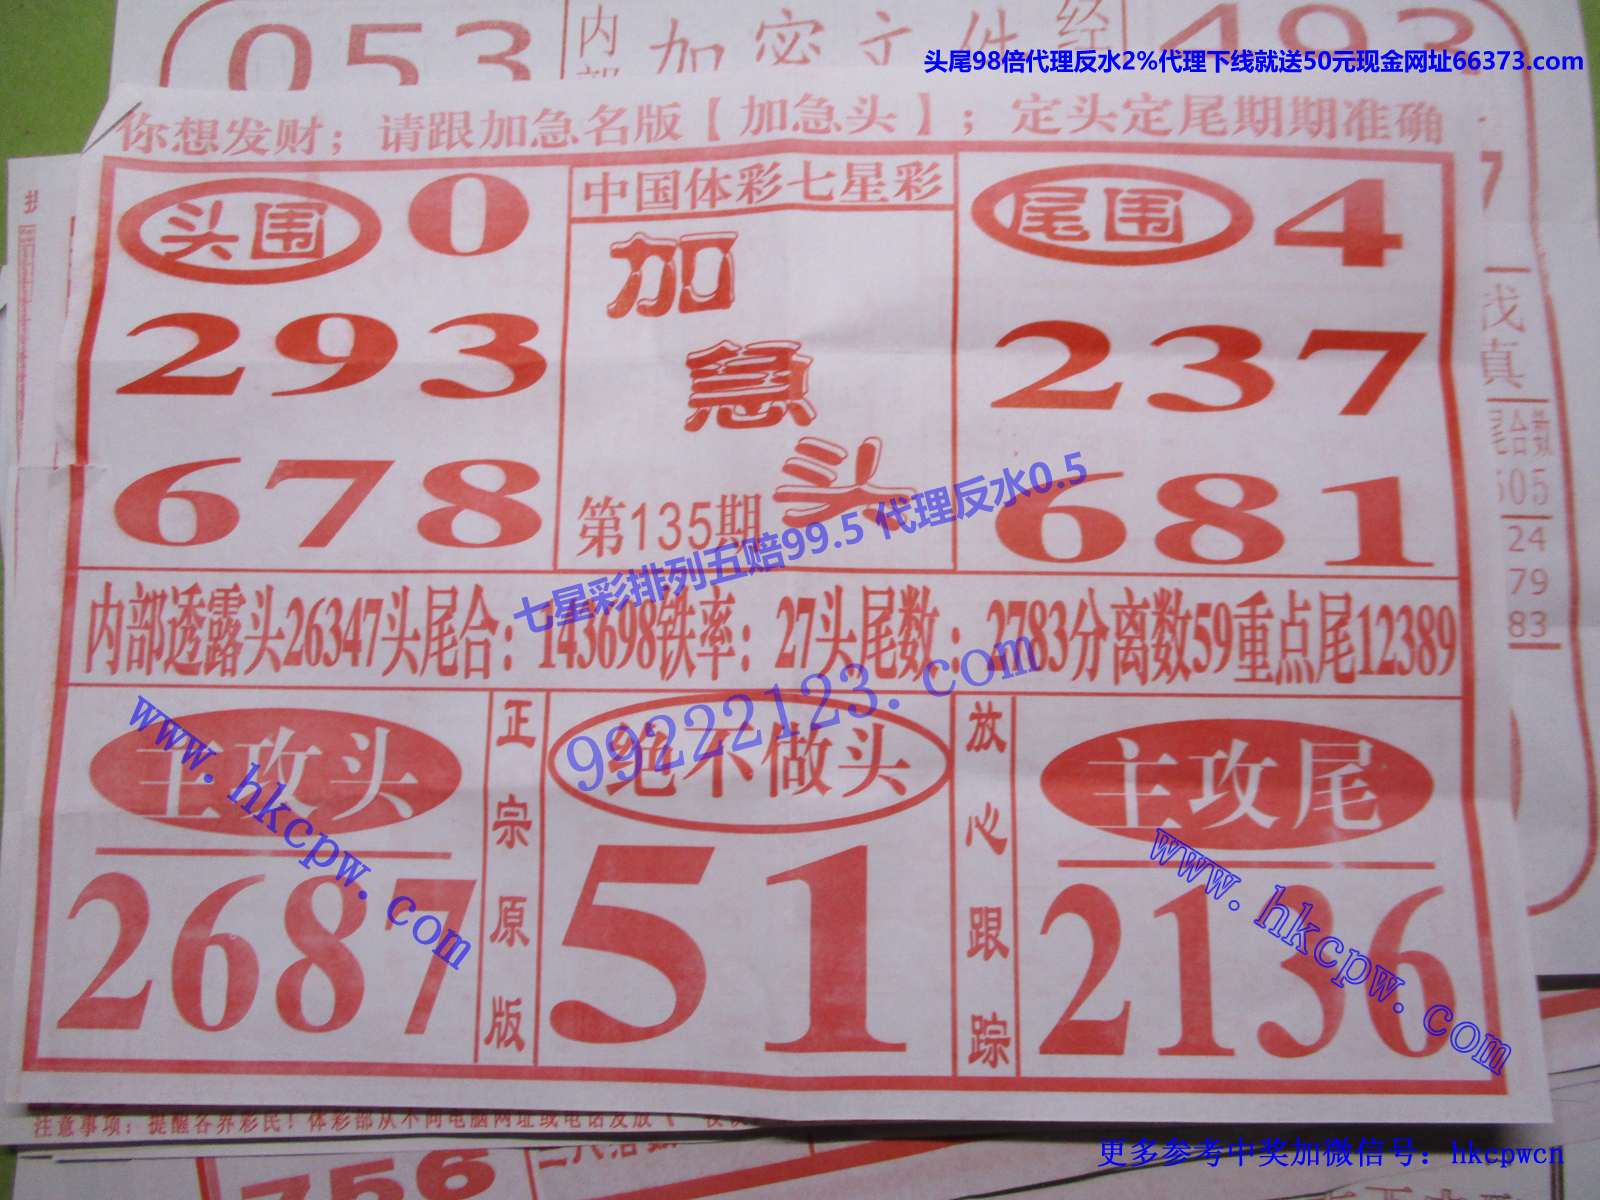 053
内部
加密文件
经
493
头尾98倍代理反水2%代理下线就送50元现金网址66373.com
你想发财；请跟加急名版【加急头】；定头定尾期期准确
头围
0
293
678
中国体彩七星彩
加
急
头
第135期
尾围
4
237
681
七星彩排列五赔99.5 代理反水0.5
内部透露头26347头尾合：143698铁率：27头尾数：2783分离数59重点尾12389
99222123.com
主攻头
2687
www.hkcpw.com
正宗原版
绝不做头
51
放心跟踪
主攻尾
2136
www.hkcpw.com
7
真
尾合数
605
24
79
83
注意事项：提醒各界彩民！体彩部从不向电脑网址或电话发放
756
更多参考中奖加微信号：hkcpwcn